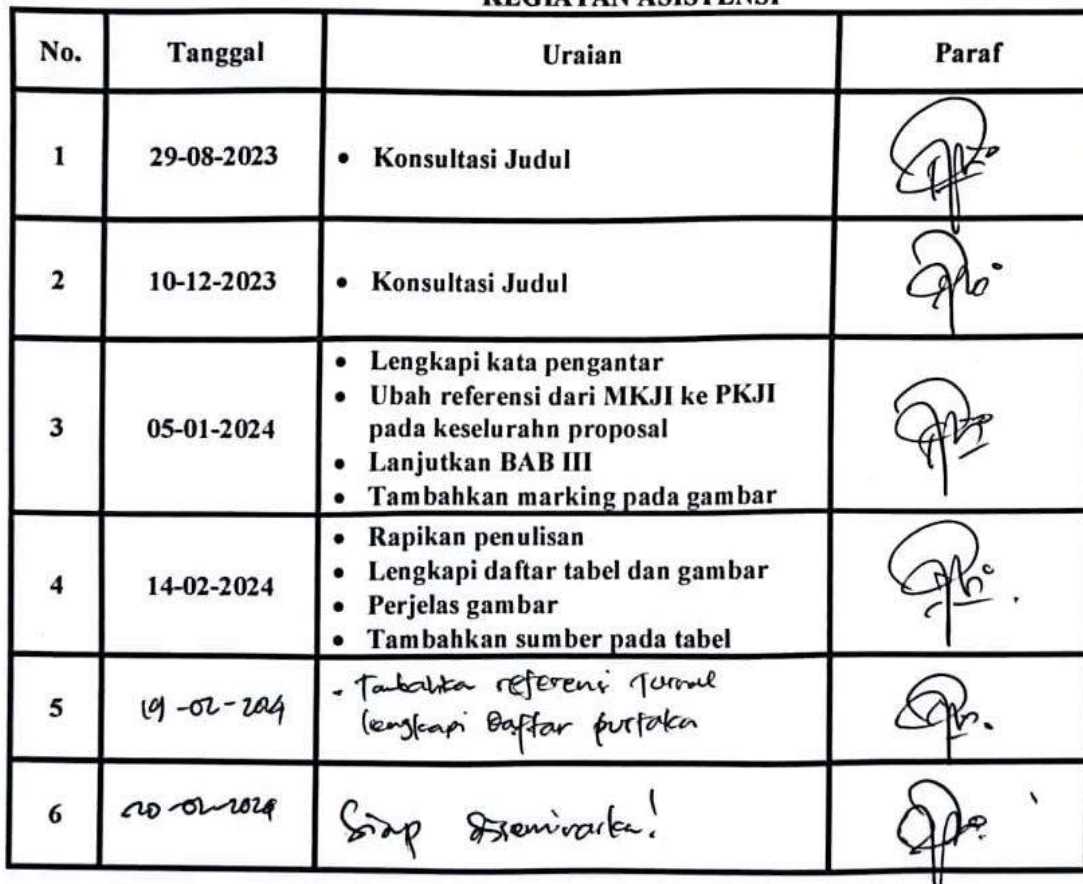 KEGIATAN ASISTENSI
No. Tanggal Uraian Paraf
1 29-08-2023 • Konsultasi Judul
2 10-12-2023 • Konsultasi Judul
3 05-01-2024
• Lengkapi kata pengantar
• Ubah referensi dari MKJI ke PKJI
pada keselurahn proposal
• Lanjutkan BAB III
• Tambahkan marking pada gambar
4 14-02-2024
• Rapikan penulisan
• Lengkapi daftar tabel dan gambar
• Perjelas gambar
• Tambahkan sumber pada tabel
5 19-02-2024
- Tambahka referensi Jurnal
lengkapi Daftar pustaka
6 20-02-2024 Siap diseminarka!